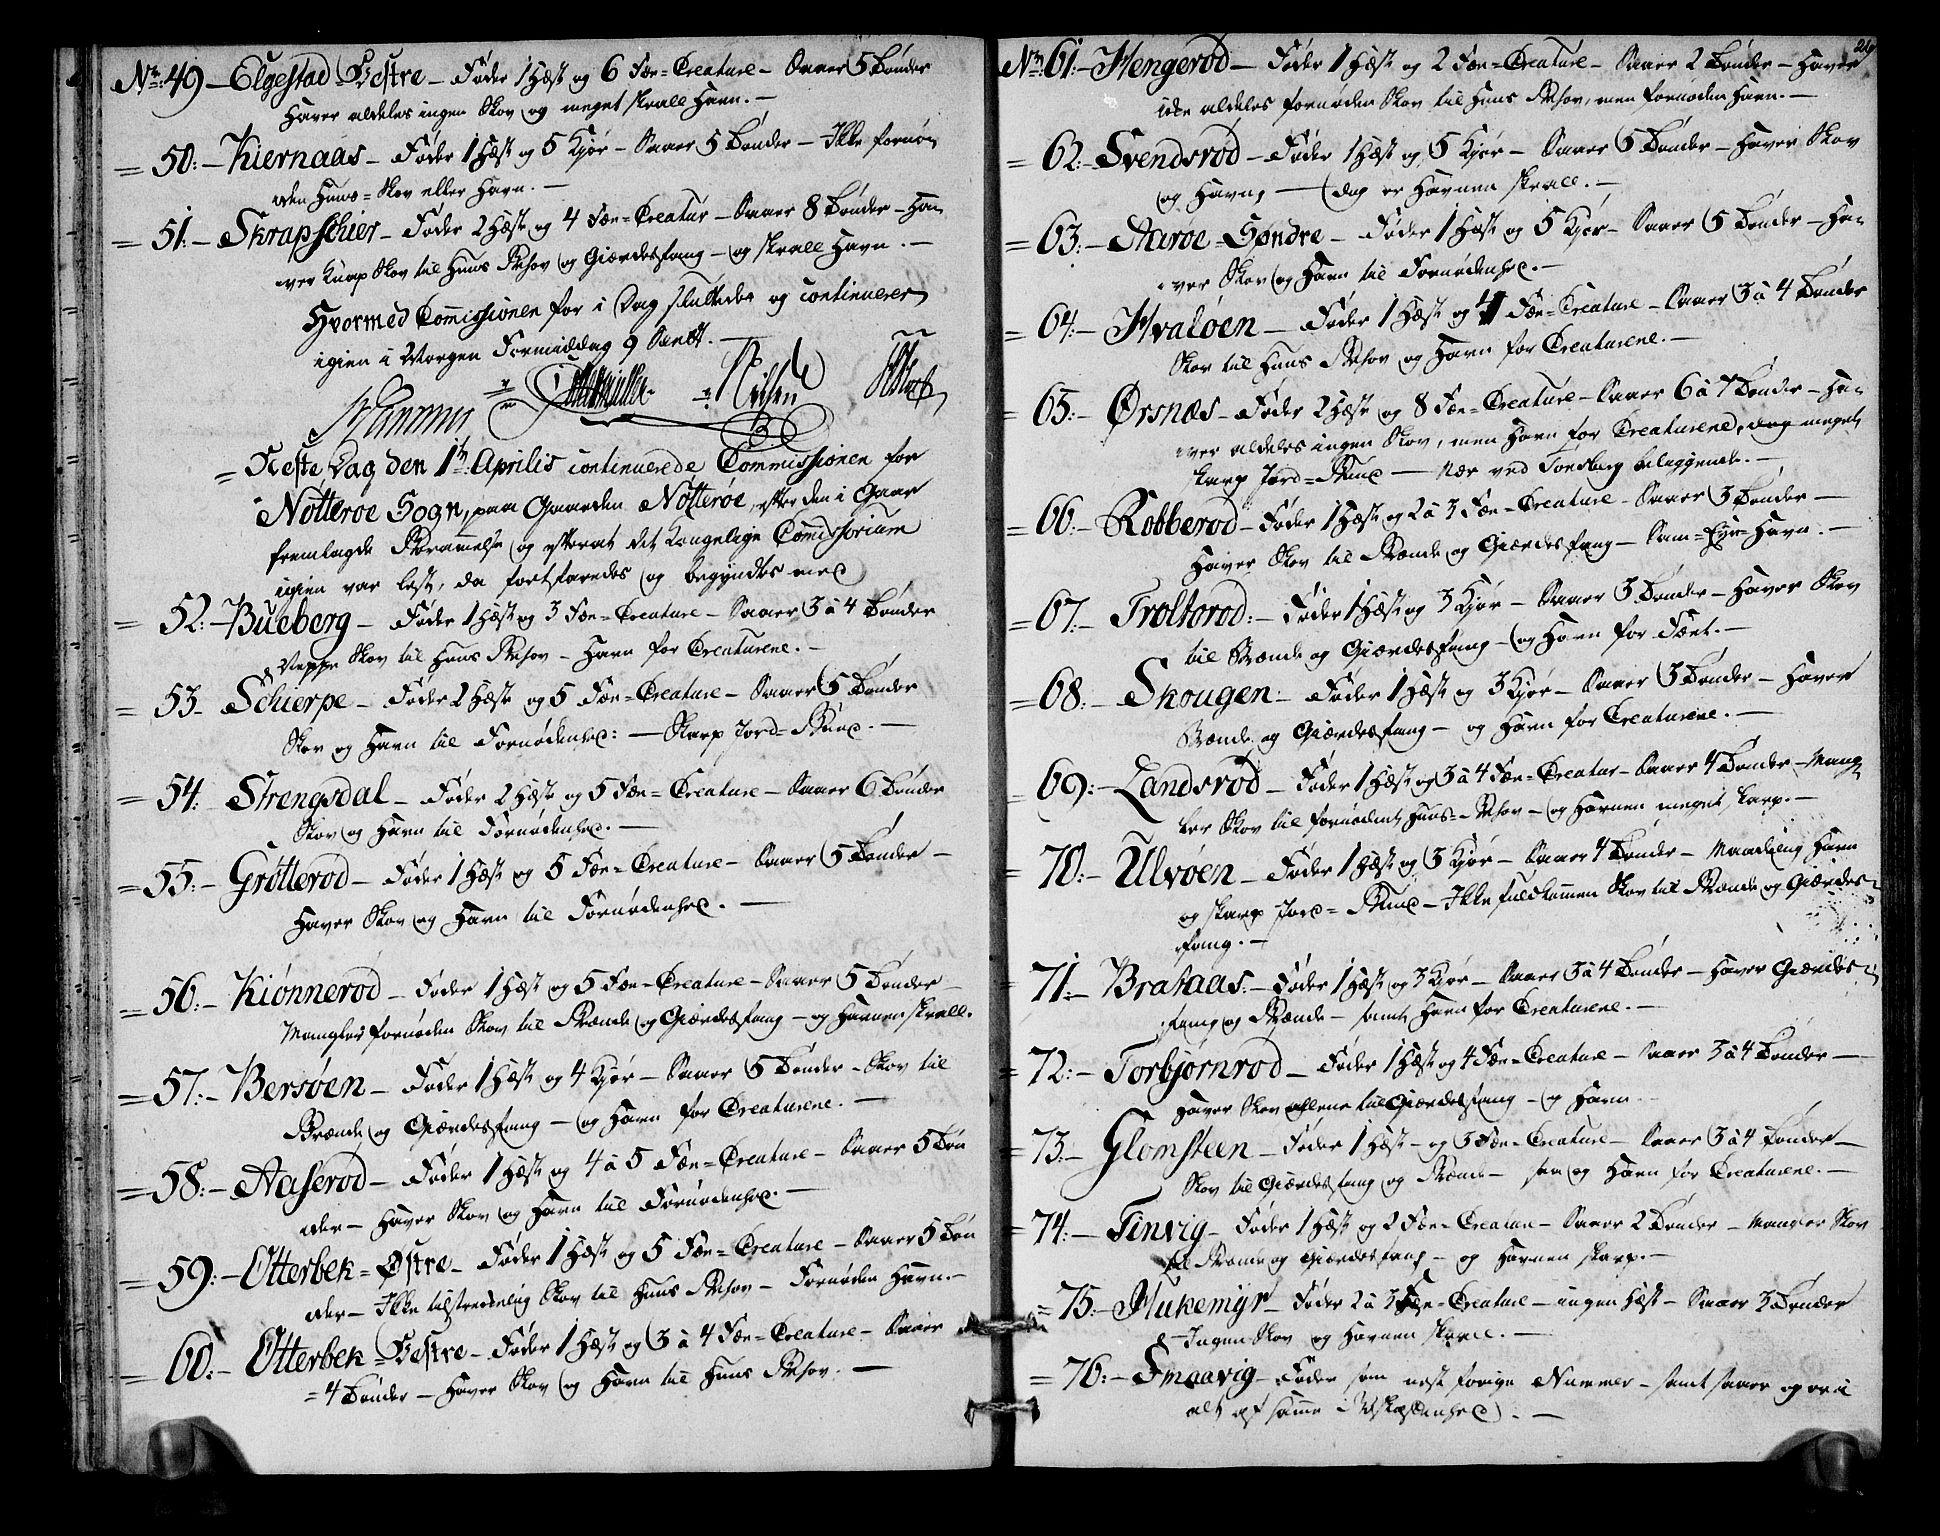 No. 49 – Elgestad Vestre – Føder 1 Hæst og 6 Fæe-Creature – Saaer 5 Tønder
Haver aldeles ingen Skov og meget skrall Havn. –
= 50:– Kiernaas – Føder 1 Hæst og 5 Kjør – Saaer 5 Tønder – Ikke fornø-
den Huus-Skov eller Havn. –
= 51:– Skrapschier – Føder 2 Hæst og 4 Fæe-Creatur – Saaer 8 Tønder – Ha-
ver knap Skov til Huus Behov og Giærdesfang – og skrall Havn. –
Hvormed Commissionen for i Dag sluttede og continuerer
igien i Morgen Formiddag 9 Slætt. –
Nilsen
= Neste Dag den 1te Aprilis continuerede Commissionen for
Nøtterøe Sogn, paa Gaarden Nøtterøe, efter den i Gaar
fremlagde Berammelse og efterat det Kongelige Commissorium
igien var lest, da fortfaredes og begyndtes med
= 52:– Bueberg – Føder 1 Hæst og 3 Fæe-Creature – Saaer 3 à 4 Tønder
Neppe Skov til Huus Behov – Havn for Creaturene. –
= 53– Schierpe – Føder 2 Hæst og 5 Fæe-Creature – Saaer 5 Tønder
Skov og Havn til Fornødenhed: – Skarp Jord-Bund. –
= 54. Strengsdal – Føder 2 Hæst og 5 Fæe-Creature – Saaer 6 Tønder
Skov og Havn til Fornødenhed. –
= 55:– Grøtterød – Føder 1 Hæst og 5 Fæe-Creature – Saaer 5 Tønder –
Haver Skov og Havn til Fornødenhed. –
= 56:– Kiønnerød – Føder 1 Hæst og 5 Fæe-Creature – Saaer 5 Tønder –
Mangler fornøden Skov til Brænde og Giærdesfang – og Havnen skrall.
= 57:– Bersøen – Føder 1 Hæst og 4 Kjør – Saaer 5 Tønder – Skov til
Brænde og Giærdesfang – og Havn for Creaturene. –
= 58:– Aaserød – Føder 1 Hæst og 4 à 5 Fæe-Creature – Saaer 5 Tøn
der – Haver Skov og Havn til Fornødenhed. –
= 59:– Otterbek-Østre – Føder 1 Hæst og 5 Fæe-Creature – Saaer 5 Tøn
der – Ikke tilstrækkelig Skov til Huus Behov – Fornøden Havn. –
= 60:– Otterbek-Vestre – Føder 1 Hæst og 3 à 4 Fæe-Creature – Saaer
= 4 Tønder – Haver Skov og Havn til Huus Behov. –
No. 61:– Mengerød – Føder 1 Hæst og 2 Fæe-Creature – Saaer 2 Tønder – Haver
ikke aldeles fornøden Skov til Huus Behov, men fornøden Havn. –
= 62:– Svendsrød – Føder 1 Hæst og 5 Kjør – Saaer 5 Tønder – Haver Skov
og Havn, – dog er Havnen skrall. –
= 63:– Aaroe-Søndre – Føder 1 Hæst og 5 Kjør – Saaer 5 Tønder – Ha-
ver Skov og Havn til Fornødenhed. –
= 64:– Hvaløen – Føder 1 Hæst og 4 Fæe-Creature – Saaer 3 à 4 Tønder
Skov til Huus Behov og Havn for Creaturene. –
= 65:– Ørsnæs – Føder 2 Hæst og 8 Fæe-Creature – Saaer 6 à 7 Tønder – Ha-
ver aldeles ingen Skov, men Havn for Creaturene, dog meget
skarp Jord-Bund – Nær ved Tønsberg beliggende. –
= 66:– Robberød – Føder 1 Hæst og 2 à 3 Fæe-Creature – Saaer 3 Tønder –
Haver Skov til Brænde og Giærdesfang – Sam-Eye-Havn. –
= 67:– Troltorød:– Føder 1 Hæst og 3 Kjør – Saaer 3 Tønder – Haver Skov
til Brænde og Giærdesfang – og Havn for Fæet. –
= 68:– Skougen:– Føder 1 Hæst og 3 Kjør – Saaer 3 Tønder – Haver
Brænde og Giærdesfang – og Havn for Creaturene. –
= 69:– Landsrød – Føder 1 Hæst og 3 à 4 Fæe-Creatur – Saaer 4 Tønder – Mang-
ler Skov til fornødent Huus-Behov – og Havnen meget skarp. –
= 70:– Ulvøen – Føder 1 Hæst og 3 Kjør – Saaer 4 Tønder – Maadelig Havn
og skarp Jord-Bund – Ikke fuldkommen Skov til Brænde og Giærdes-
fang. –
71:– Brataas:– Føder 1 Hæst og 3 Kjør – Saaer 3 à 4 Tønder – Haver Giærdes-
fang og Brænde – samt Havn for Creaturene. –
= 72:– Torbjørnrød – Føder 1 Hæst og 4 Fæe-Creature – Saaer 3 à 4 Tønder –
Haver Skov allene til Giærdesfang – og Havn –
= 73:– Glomsteen – Føder 1 Hæst – og 3 Fæe-Creature – Saaer 3 à 4 Tønder –
Skov til Giærdesfang og Brænde – saa og Havn for Creaturene. –
= 74:– Tinvig – Føder 1 Hæst og 2 Fæe-Creature – Saaer 2 Tønder – Mangler Skov
til Brænde og Giærdesfang – og Havnen skarp. –
= 75:– Mukemyr – Føder 2 à 3 Fæe-Creature – ingen Hæst – Saaer 3 Tønder
– Ingen Skov og Havnen skral. –
= 76:– Smaavig – Føder som næst forige Nummer – samt saaer og er i
alt af samme Beskaffenhed. –